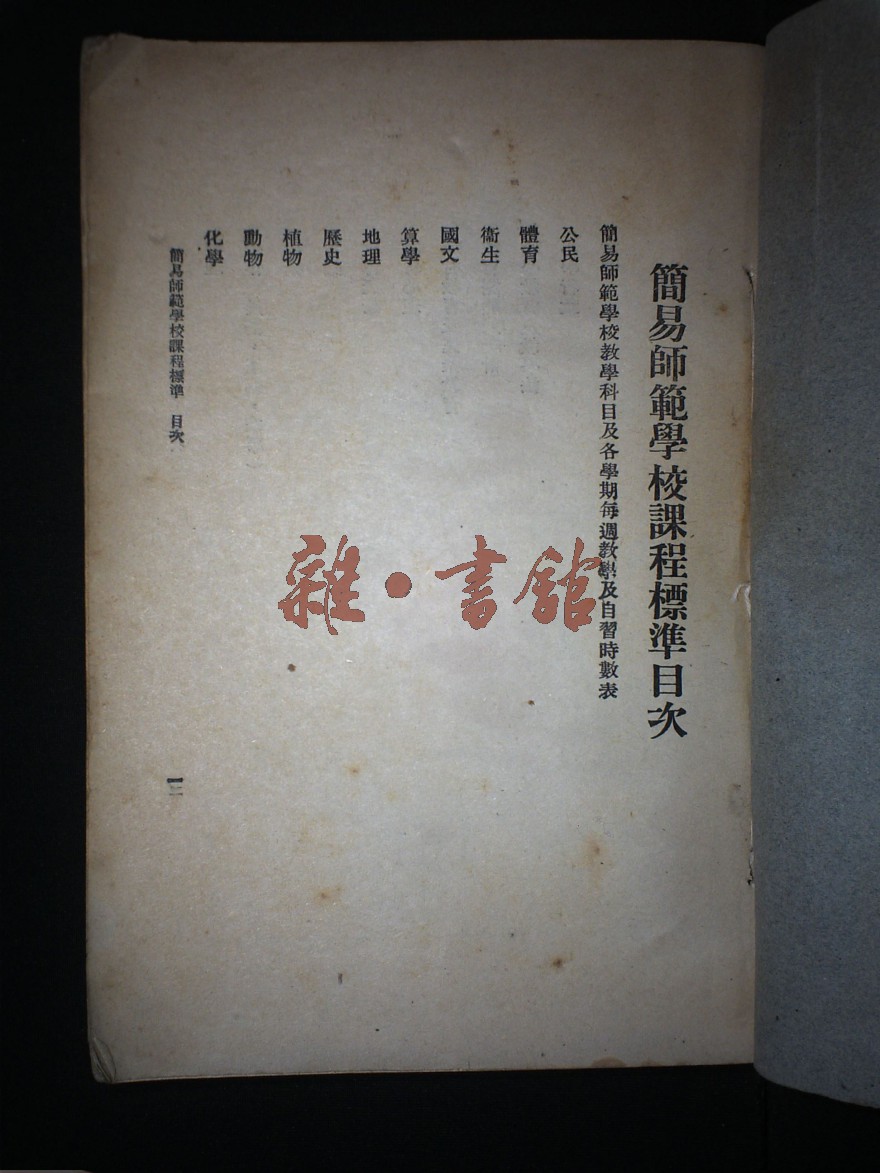 簡易師範學校課程標準目次
簡易師範學校教學科目及各學期每週教學及自習時數表
公民
體育
衞生
國文
算學
地理
歷史
植物
動物
化學
簡易師範學校課程標準 目次
雜•書館